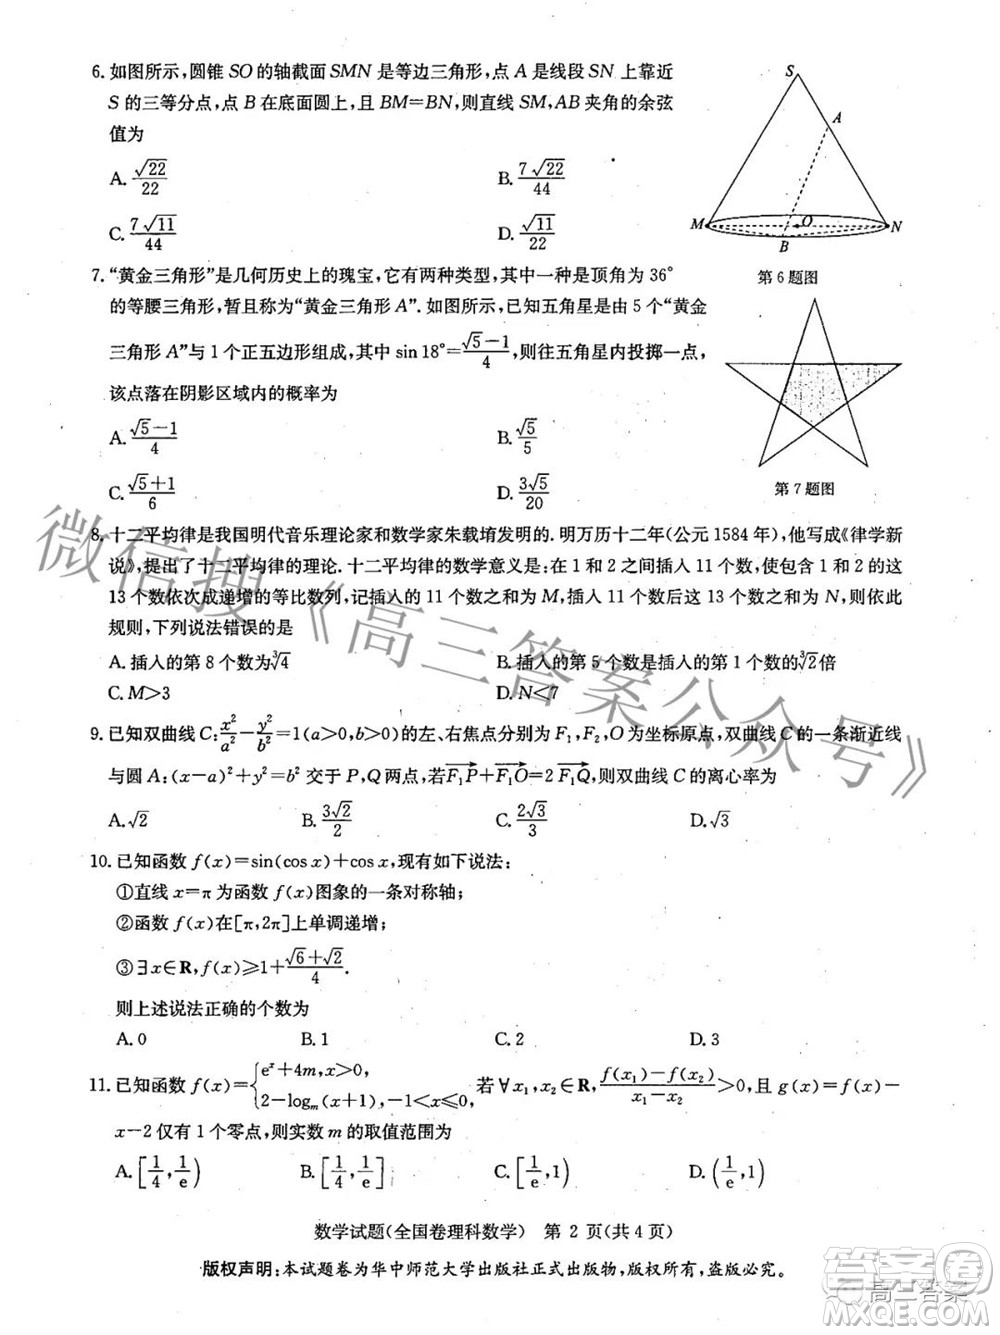 6. 如图所示,圆锥 SO 的轴截面 SMN 是等边三角形,点 A 是线段 SN 上靠近
S 的三等分点,点 B 在底面圆上,且 BM=BN,则直线 SM,AB 夹角的余弦
值为
A. √22/22 B. 7√22/44
C. 7√11/44 D. √11/22
S
A
M
O
N
B
第 6 题图
7. “黄金三角形”是几何历史上的瑰宝,它有两种类型,其中一种是顶角为 36°
的等腰三角形,暂且称为“黄金三角形 A”. 如图所示,已知五角星是由 5 个“黄金
三角形 A”与 1 个正五边形组成,其中 sin 18°=(√5−1)/4,则往五角星内投掷一点,
该点落在阴影区域内的概率为
A. (√5−1)/4 B. √5/5
C. (√5+1)/6 D. 3√5/20
第 7 题图
8. 十二平均律是我国明代音乐理论家和数学家朱载堉发明的. 明万历十二年(公元 1584 年),他写成《律学新
说》,提出了十二平均律的理论. 十二平均律的数学意义是:在 1 和 2 之间插入 11 个数,使包含 1 和 2 的这
13 个数依次成递增的等比数列,记插入的 11 个数之和为 M,插入 11 个数后这 13 个数之和为 N,则依此
规则,下列说法错误的是
A. 插入的第 8 个数为∛4 B. 插入的第 5 个数是插入的第 1 个数的∛2倍
C. M>3 D. N<7
9. 已知双曲线 C:x²/a²−y²/b²=1(a>0,b>0)的左、右焦点分别为 F₁,F₂,O 为坐标原点,双曲线 C 的一条渐近线
与圆 A:(x−a)²+y²=b² 交于 P,Q 两点,若F₁P→+F₁O→=2 F₁Q→,则双曲线 C 的离心率为
A. √2 B. 3√2/2 C. 2√3/3 D. √3
10. 已知函数 f(x)=sin(cos x)+cos x,现有如下说法:
①直线 x=π 为函数 f(x)图象的一条对称轴;
②函数 f(x)在[π,2π]上单调递增;
③∃x∈R,f(x)⩾1+(√6+√2)/4.
则上述说法正确的个数为
A. 0 B. 1 C. 2 D. 3
11. 已知函数 f(x)={eˣ+4m,x>0, 2−logₘ(x+1),−1<x⩽0, 若∀x₁,x₂∈R,(f(x₁)−f(x₂))/(x₁−x₂)>0,且 g(x)=f(x)−
x−2 仅有 1 个零点,则实数 m 的取值范围为
A. [1/4,1/e) B. [1/4,1/e] C. [1/e,1) D. (1/e,1)
数学试题(全国卷理科数学) 第 2 页(共 4 页)
版权声明:本试题卷为华中师范大学出版社正式出版物,版权所有,盗版必究。
微信搜《高三答案公众号》
答案圈
高三答案
MXQE.COM